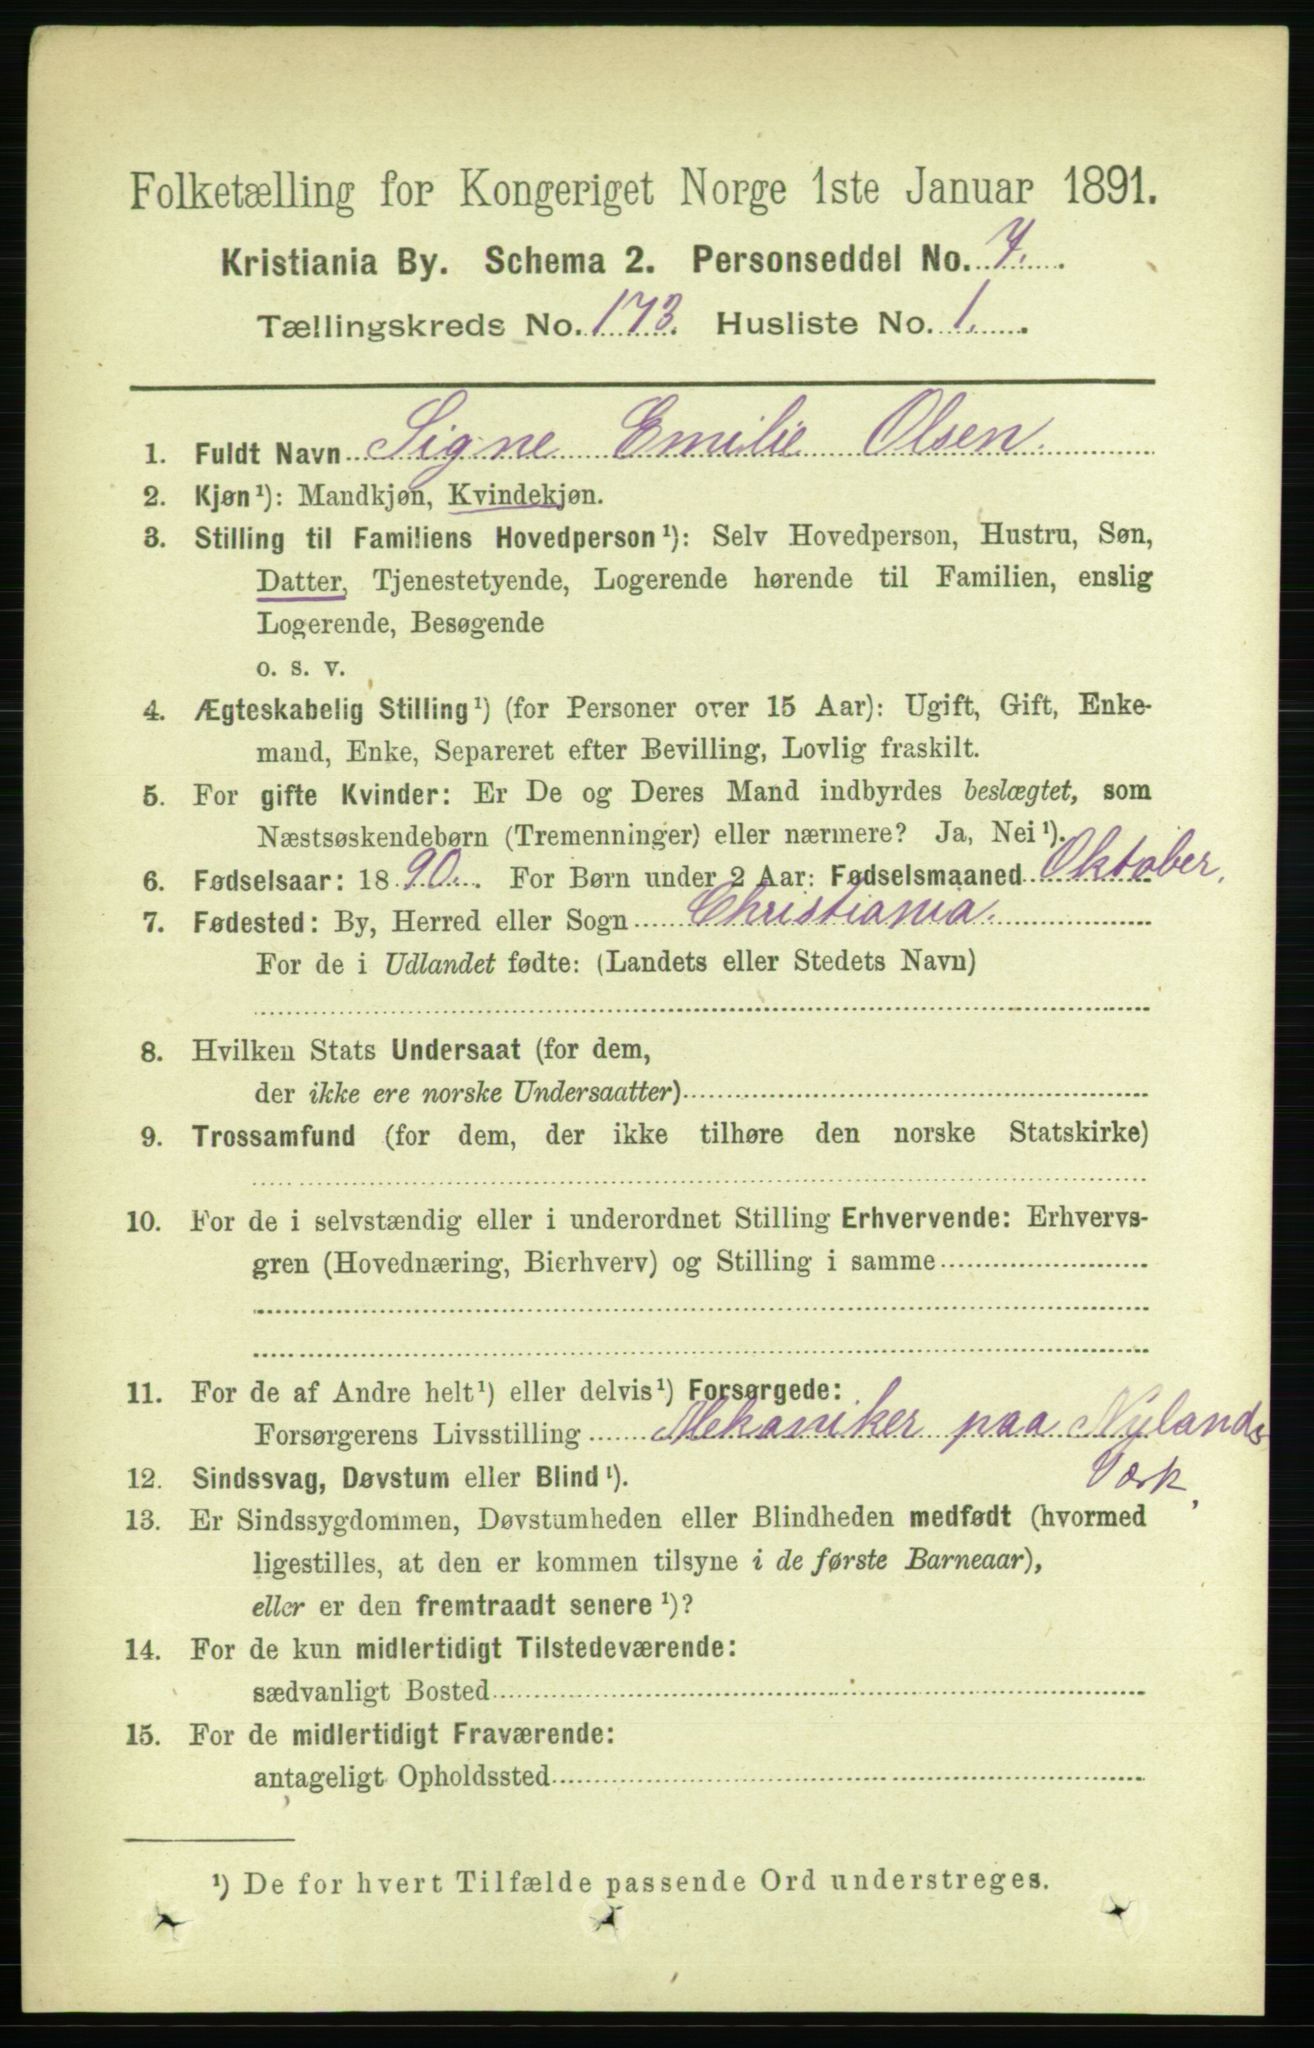 Folketælling for Kongeriget Norge 1ste Januar 1891.
Kristiania By. Schema 2. Personseddel No. 7.
Tællingskreds No. 173. Husliste No. 1.
1. Fuldt Navn Signe Emilie Olsen.
2. Kjøn ¹): Mandkjøn, Kvindekjøn.
3. Stilling til Familiens Hovedperson ¹): Selv Hovedperson, Hustru, Søn,
Datter, Tjenestetyende, Logerende hørende til Familien, enslig
Logerende, Besøgende
o. s. v.
4. Ægteskabelig Stilling ¹) (for Personer over 15 Aar): Ugift, Gift, Enke-
mand, Enke, Separeret efter Bevilling, Lovlig fraskilt.
5. For gifte Kvinder: Er De og Deres Mand indbyrdes beslægtet, som
Næstsøskendebørn (Tremenninger) eller nærmere? Ja, Nei ¹).
6. Fødselsaar: 1890. For Børn under 2 Aar: Fødselsmaaned Oktober.
7. Fødested: By, Herred eller Sogn Christiania.
For de i Udlandet fødte: (Landets eller Stedets Navn)
8. Hvilken Stats Undersaat (for dem,
der ikke ere norske Undersaatter)
9. Trossamfund (for dem, der ikke tilhøre den norske Statskirke)
10. For de i selvstændig eller i underordnet Stilling Erhvervende: Erhvervs-
gren (Hovednæring, Bierhverv) og Stilling i samme
11. For de af Andre helt ¹) eller delvis ¹) Forsørgede:
Forsørgerens Livsstilling Mekaniker paa Nylands
Værk.
12. Sindssvag, Døvstum eller Blind ¹).
13. Er Sindssygdommen, Døvstumheden eller Blindheden medfødt (hvormed
ligestilles, at den er kommen tilsyne i de første Barneaar),
eller er den fremtraadt senere ¹)?
14. For de kun midlertidigt Tilstedeværende:
sædvanligt Bosted
15. For de midlertidigt Fraværende:
antageligt Opholdssted
¹) De for hvert Tilfælde passende Ord understreges.